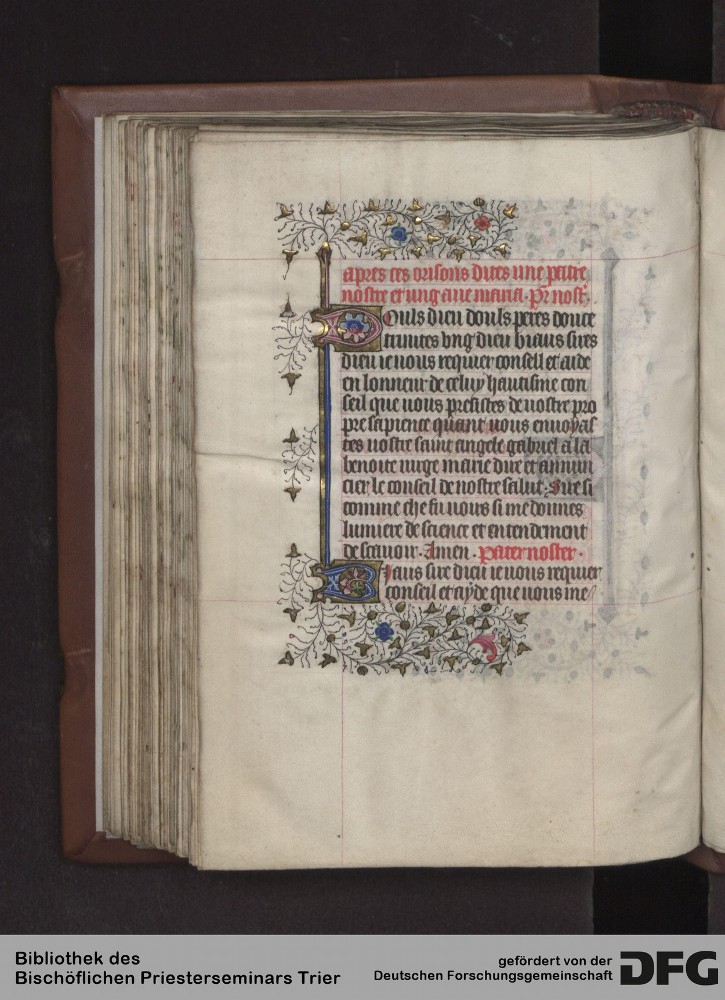 apres ces orisons dites une patre
nostre et ung ave maria. pr̄ nost̄.
Douls dieu douls peres doute
trinites ung dieu biaus sires
dieu ie vous requier consell et aide
en lonneur de celuy hautisme con
seil que vous presistes de vostre pro
pre sapience quant vous envoyas
tes vostre saint angele gabriel a la
benoite virge marie dire et annun
cier le conseil de nostre salut. Sire si
comme che fu vours si me donnes
lumiere de science et entendement
de scavoir. Amen. Pater noster.
Biaus sire dieu ie vous requier
conseil et ayde que vous me
Bibliothek des
Bischöflichen Priesterseminars Trier
gefördert von der
Deutschen Forschungsgemeinschaft
DFG